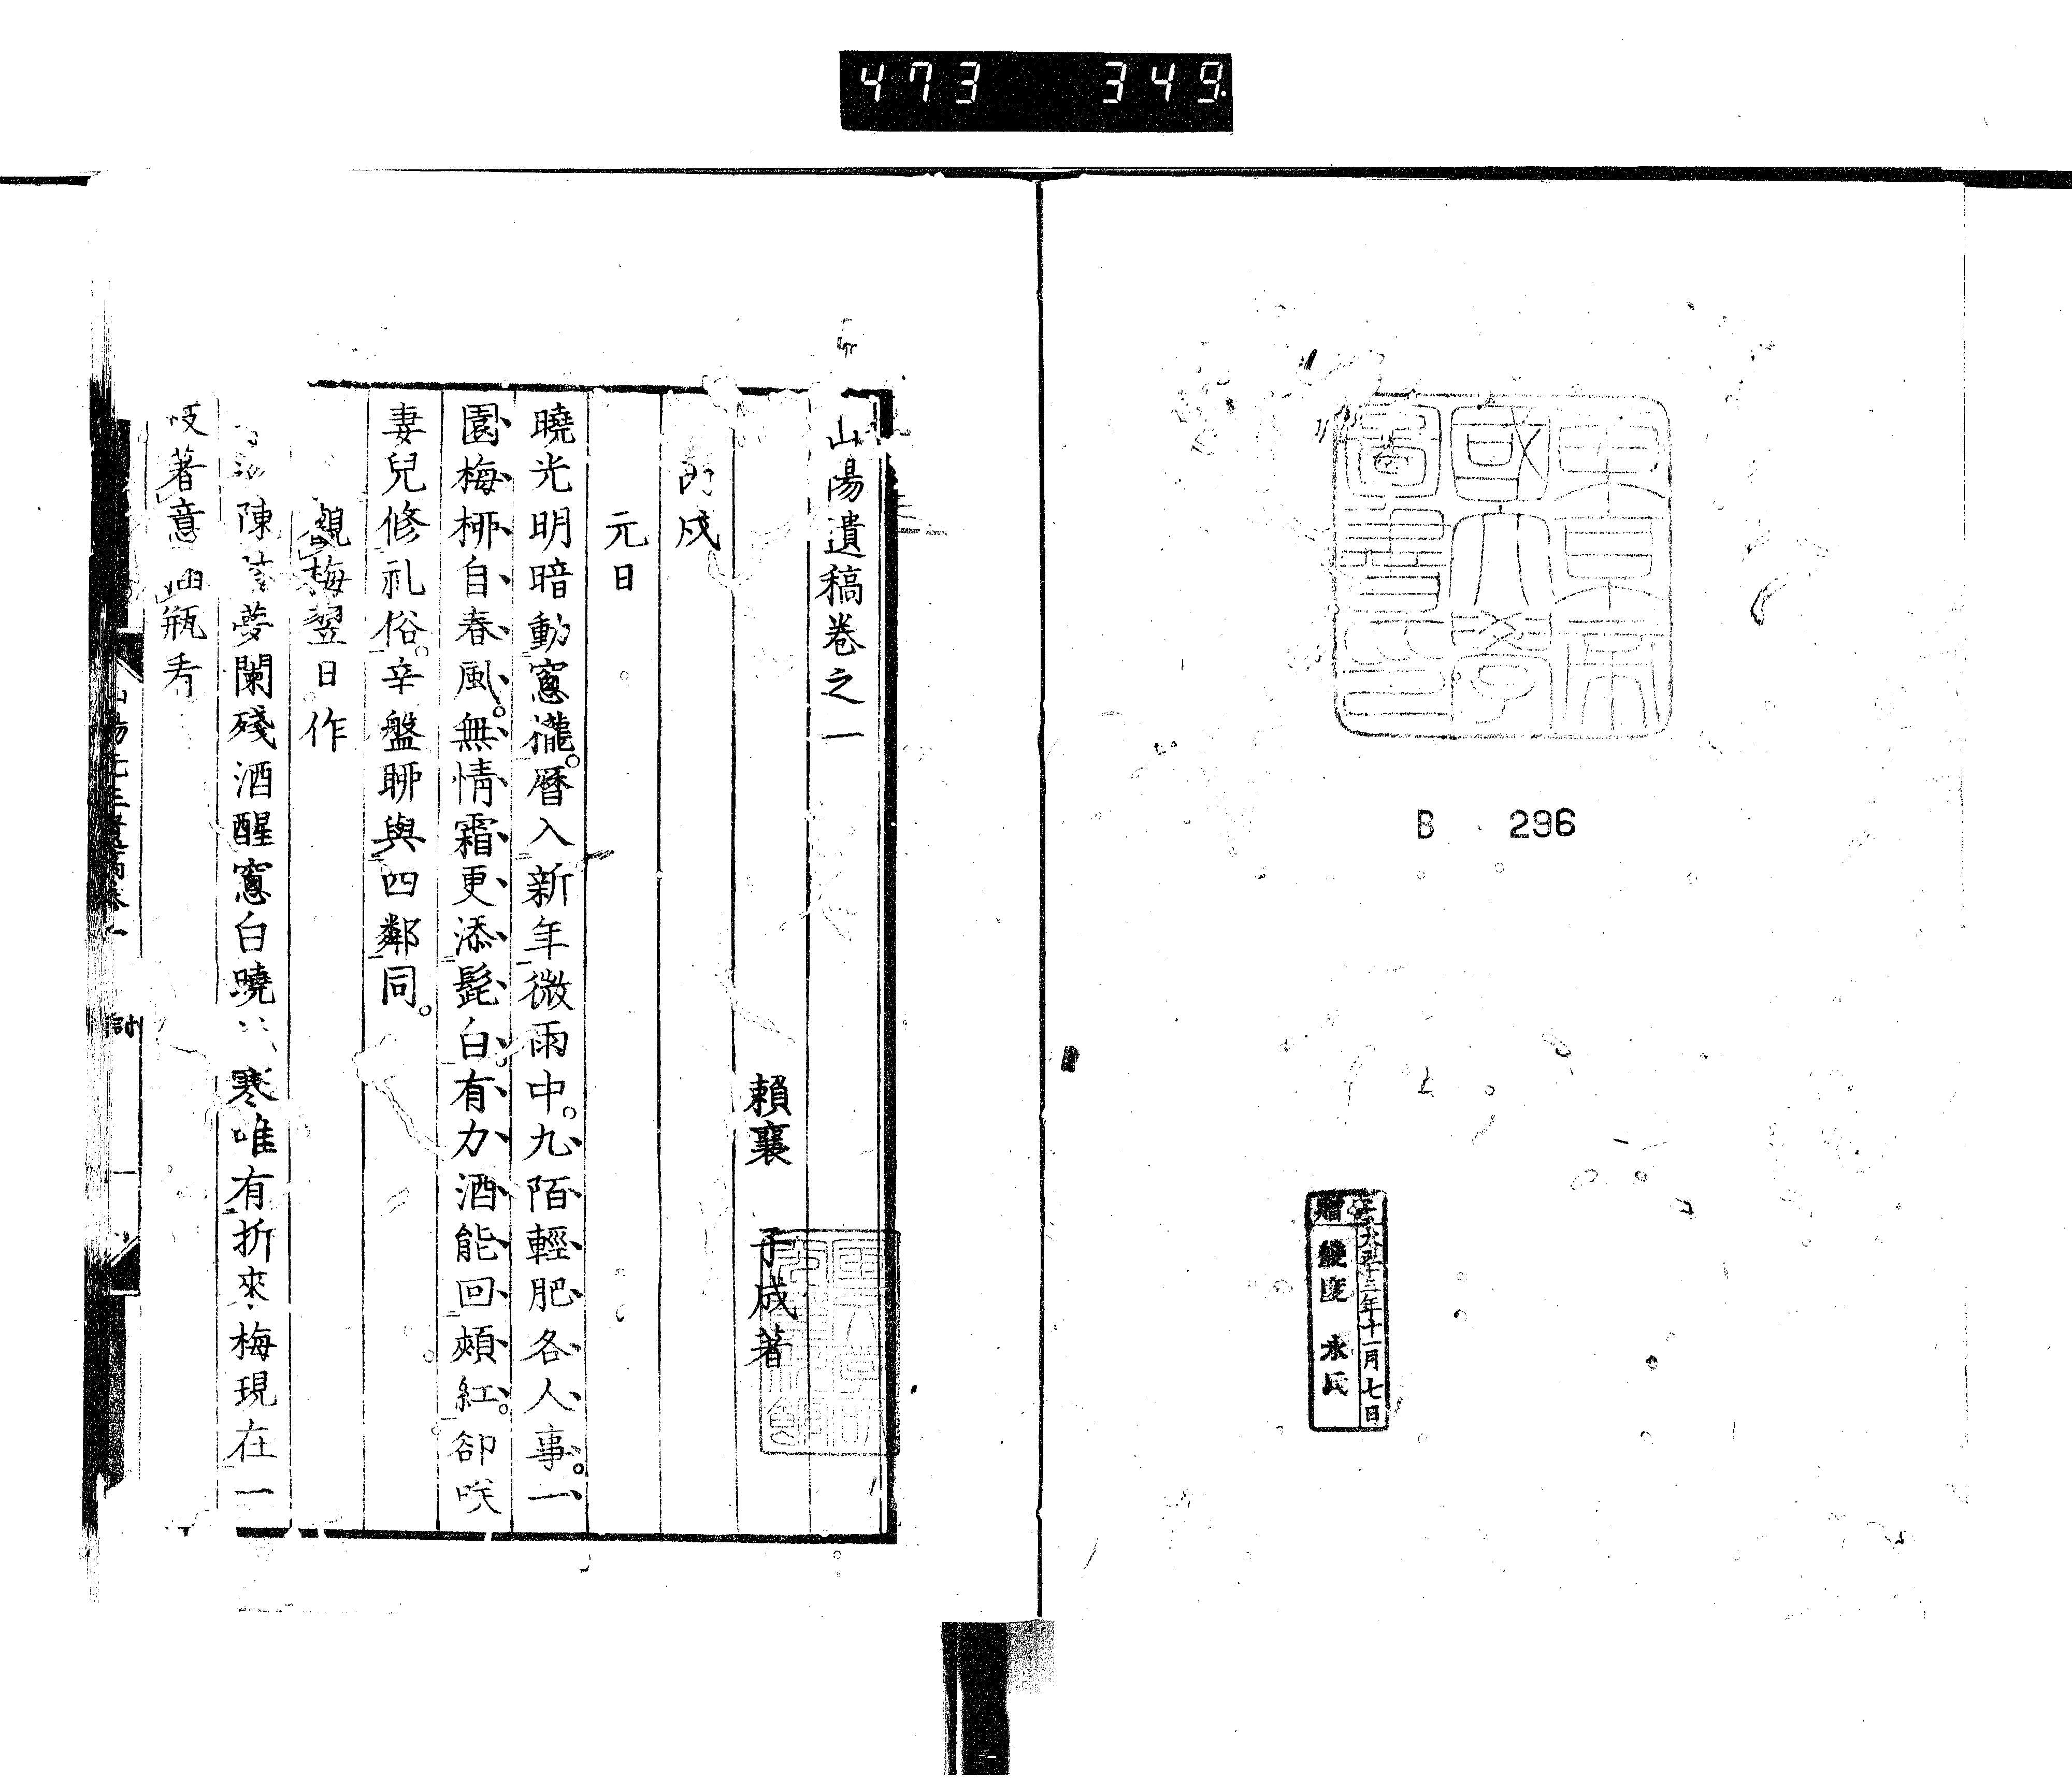 473 349
東京帝國大學圖書之印
B 296
寄贈
大正十三年十一月七日
永氏
山陽遺稿卷之一
賴襄 子成著
丙戌
元日
曉光明暗動窻櫳。曆入新年微雨中。九陌輕肥各人事。一
園梅栁自春風。無情霜更添髭白。有力酒能回頰紅。卻咲
妻兒修礼俗。辛盤聊與四鄰同。
觀梅翌日作
陳 夢闌殘酒醒窻白曉 寒唯有折來梅現在一
枝著意 瓶看
山陽先生遺稿卷一 詩 一